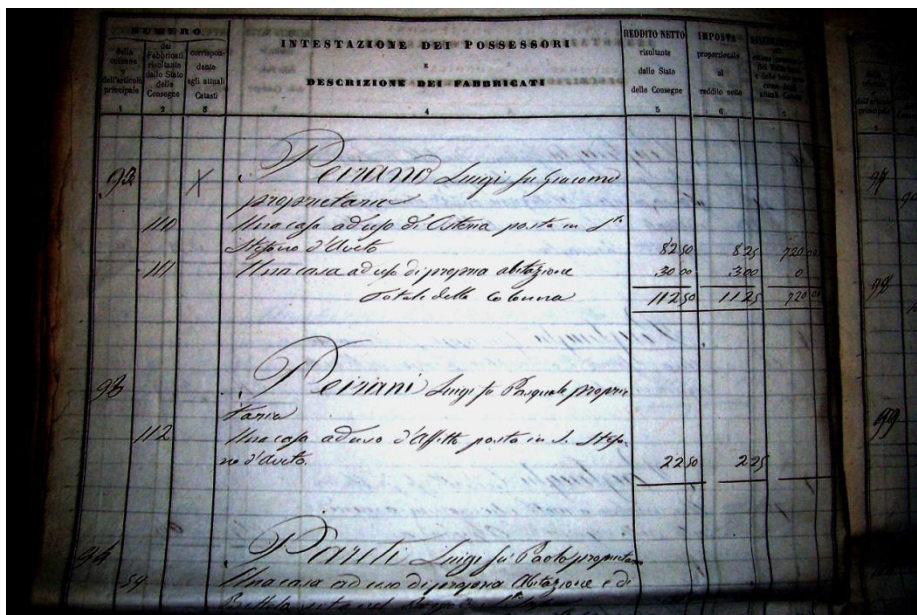 NUMERO
INTESTAZIONE DEI POSSESSORI
E
DESCRIZIONE DEI FABBRICATI
REDDITO NETTO
risultante
dallo Stato
delle Consegne
IMPOSTA
proporzionale
al
reddito netto
della
colonna
dell'articolo
principale
dei
Fabbricati
risultante
dallo Stato
delle
Consegne
corrispon-
dente
agli attuali
Catasti
1 2 3 4 5 6 7
92 X Peirano Luigi fu Giacomo
proprietario
110 Una casa ad uso di Osteria posta in S.to
Stefano d'Aveto 82 50 8 25 720 00
111 Una casa ad uso di propria abitazione 30 00 3 00 0
Totale della Colonna 112 50 11 25 720 00
93 Peirani Luigi fu Pasquale proprie
tario
112 Una casa ad uso d'affitto posta in S. Stefa-
no d'Aveto. 22 50 2 25
94 Luigi fu Paolo proprietario
54 Una casa ad uso di propria Abitazione e di